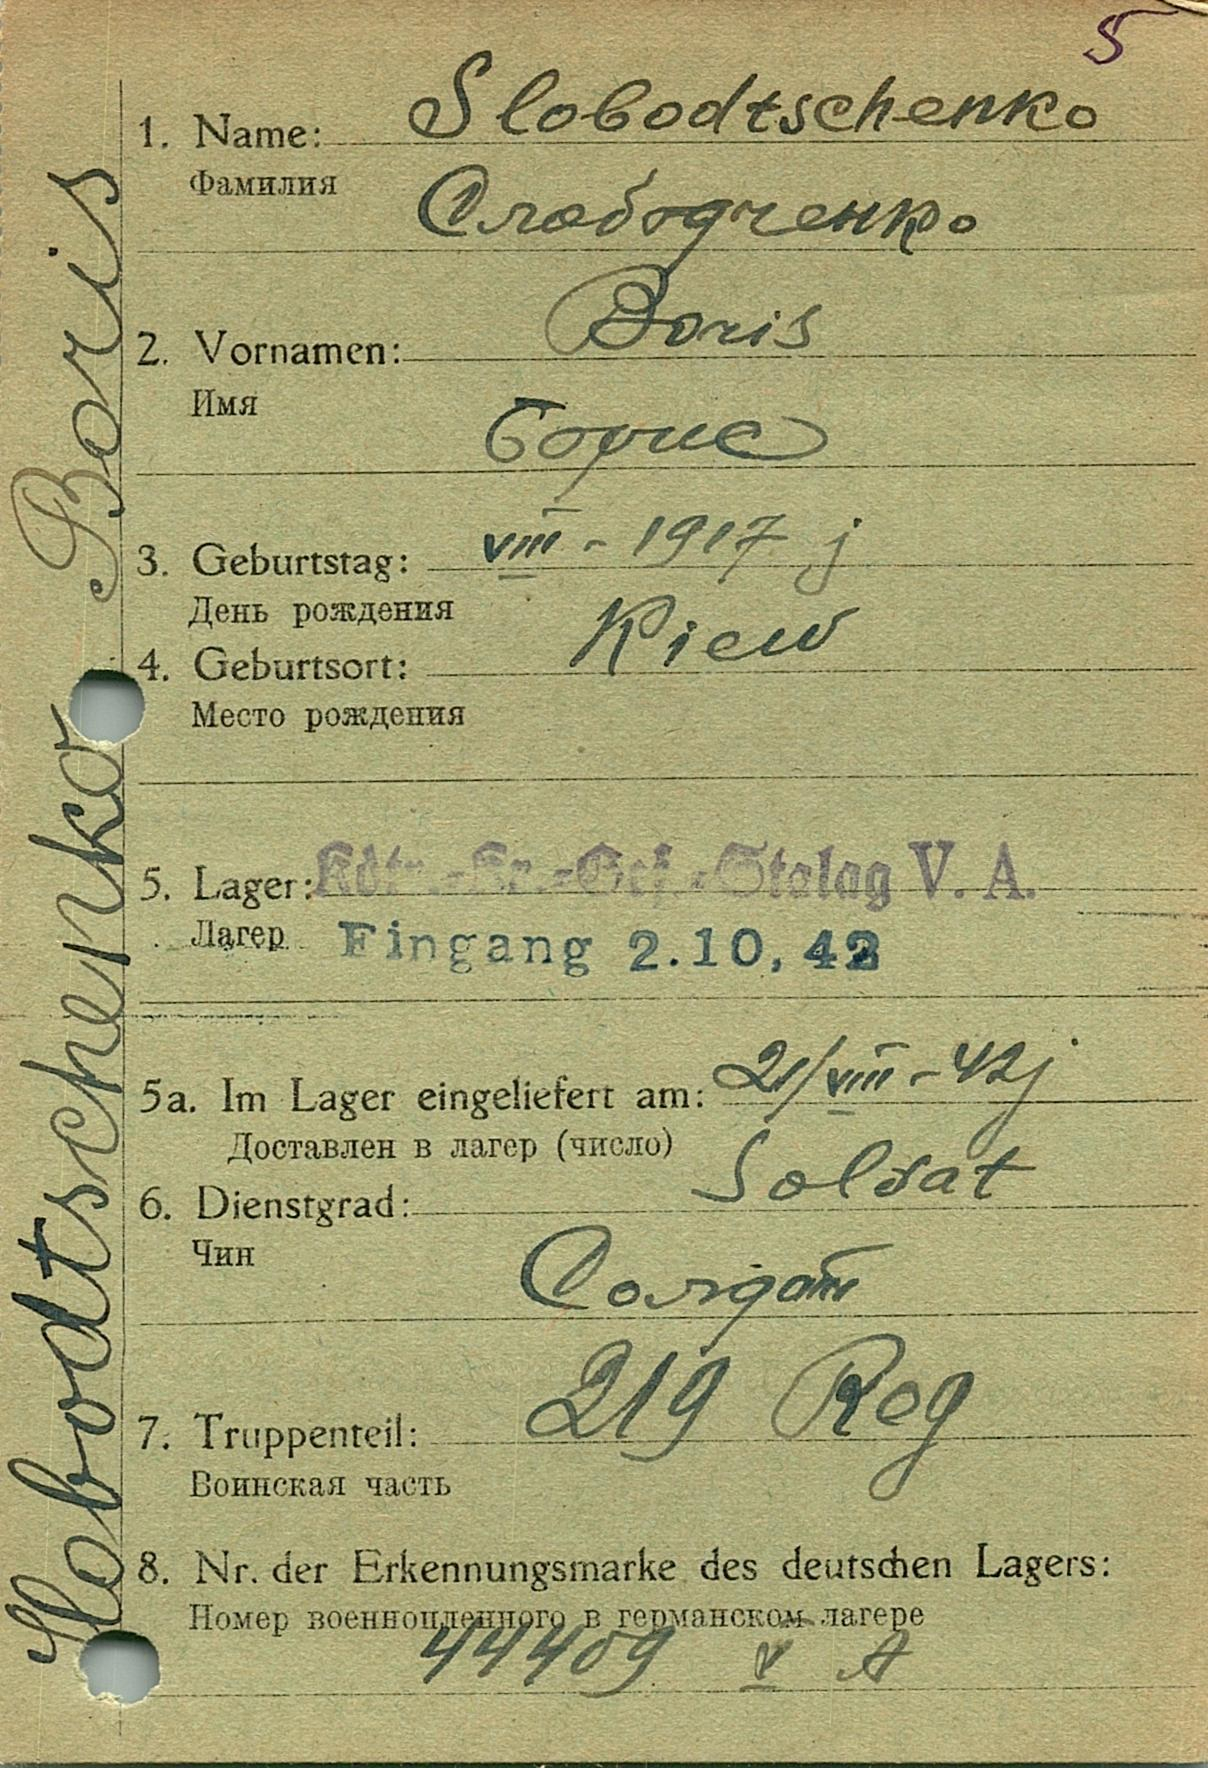 5
1. Name: Slobodtschenko
Фамилия Слободченко
2. Vornamen: Boris
Имя
Борис
3. Geburtstag: VIII - 1917 j
День рождения
4. Geburtsort: Kiew
Место рождения
5. Lager: Kdtr.-Kr.-Gef.-Stalag V. A.
Лагер Eingang 2.10, 42
5a. Im Lager eingeliefert am: 21/VIII - 42 j
Доставлен в лагер (число)
6. Dienstgrad: Soldat
Чин
Солдат
7. Truppenteil: 219 Reg
Воинская часть
8. Nr. der Erkennungsmarke des deutschen Lagers:
Номер военнопленного в германском лагере
44409 V A
Slobodtschenko Boris